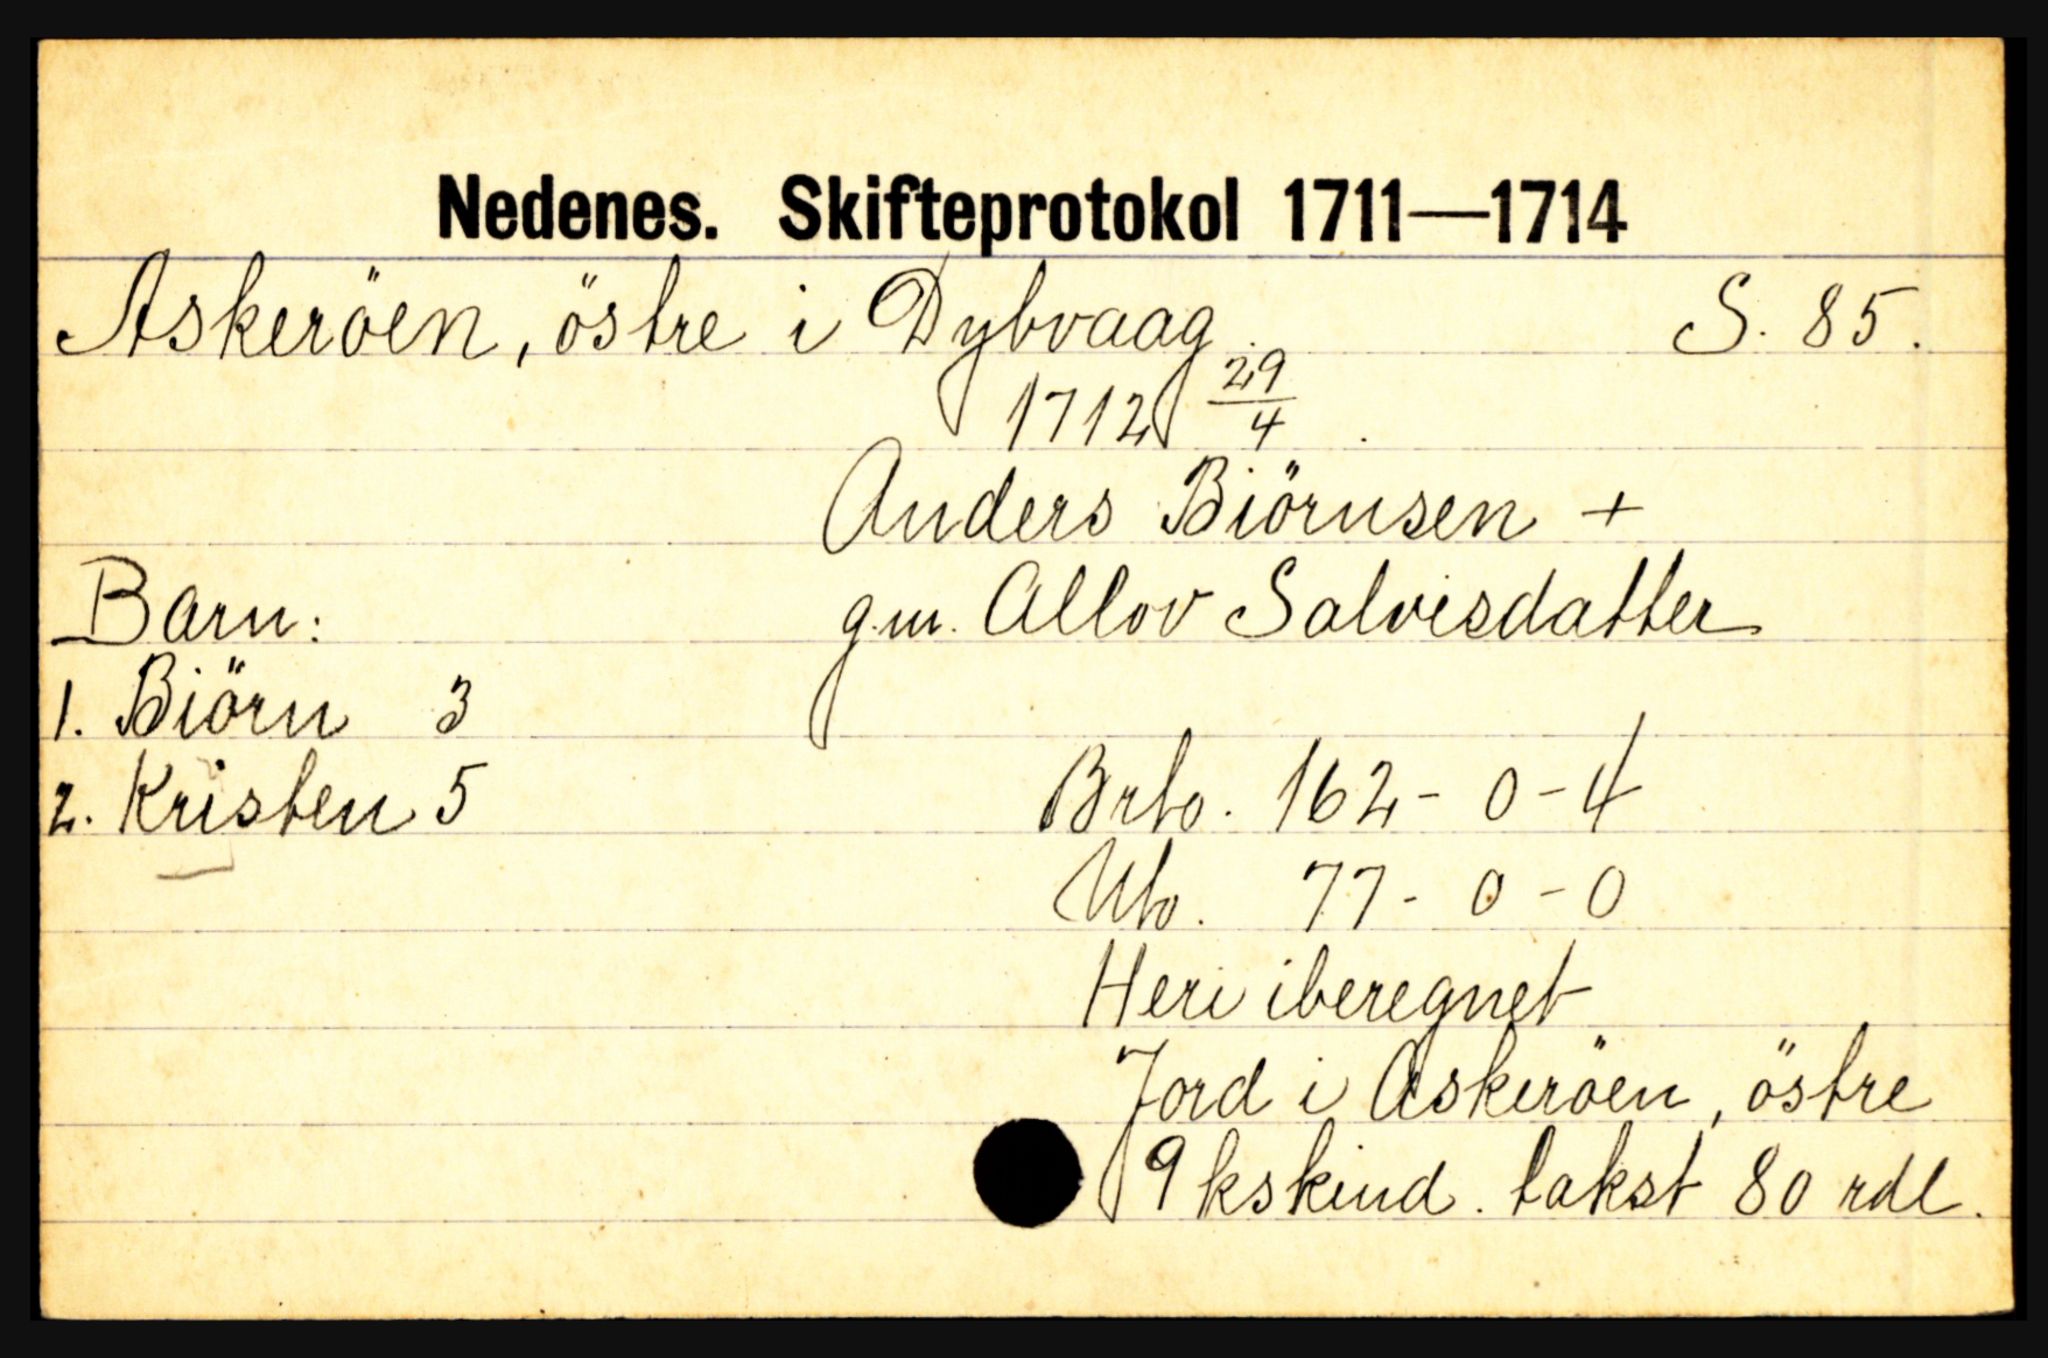 Nedenes. Skifteprotokol 1711—1714
Askeröen, östre i Dybvaag. S. 85.
1712 29/4.
Anders Biörnsen +
g.m. Allov Salvesdatter
Barn:
1. Biörn 3
2. Kristen 5
Brto. 162 - 0 - 4
Nto. 77 - 0 - 0
Heri iberegnet
Jord i Askeröen, östre
9 kskind. takst 80 rdl.